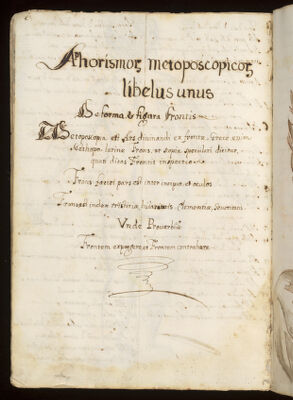 Aphorismoꝝ metoposcopicoꝝ
libelus unus
De forma & figura frontis
Metoposcopia est Ars diuinandi ex fronte, Grece enim
latine Frons, et scopin speculari dicitur,
quasi dicas Frontis inspectionem
Frons faciei pars est inter crepia et oculos
Frons est index tristitiæ, hilaritatis, Clementiæ, Seueritatis
Vnde Prouerbium
Frontem exporgere, et Frontem contrahere